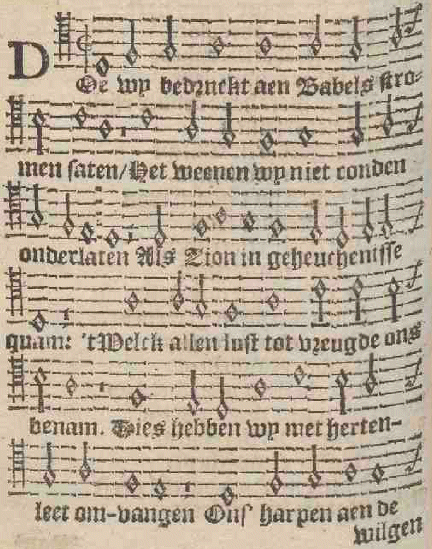 DOe wy bedruckt aen Babels stro-
men saten/Het weenen wy niet conden
onderlaten Als Zion in geheuchenisse
quam: 'tWelck allen lust tot vreugde ons
benam. Dies hebben wy met herten-
leet om-vangen Ons' harpen aen de
wilgen